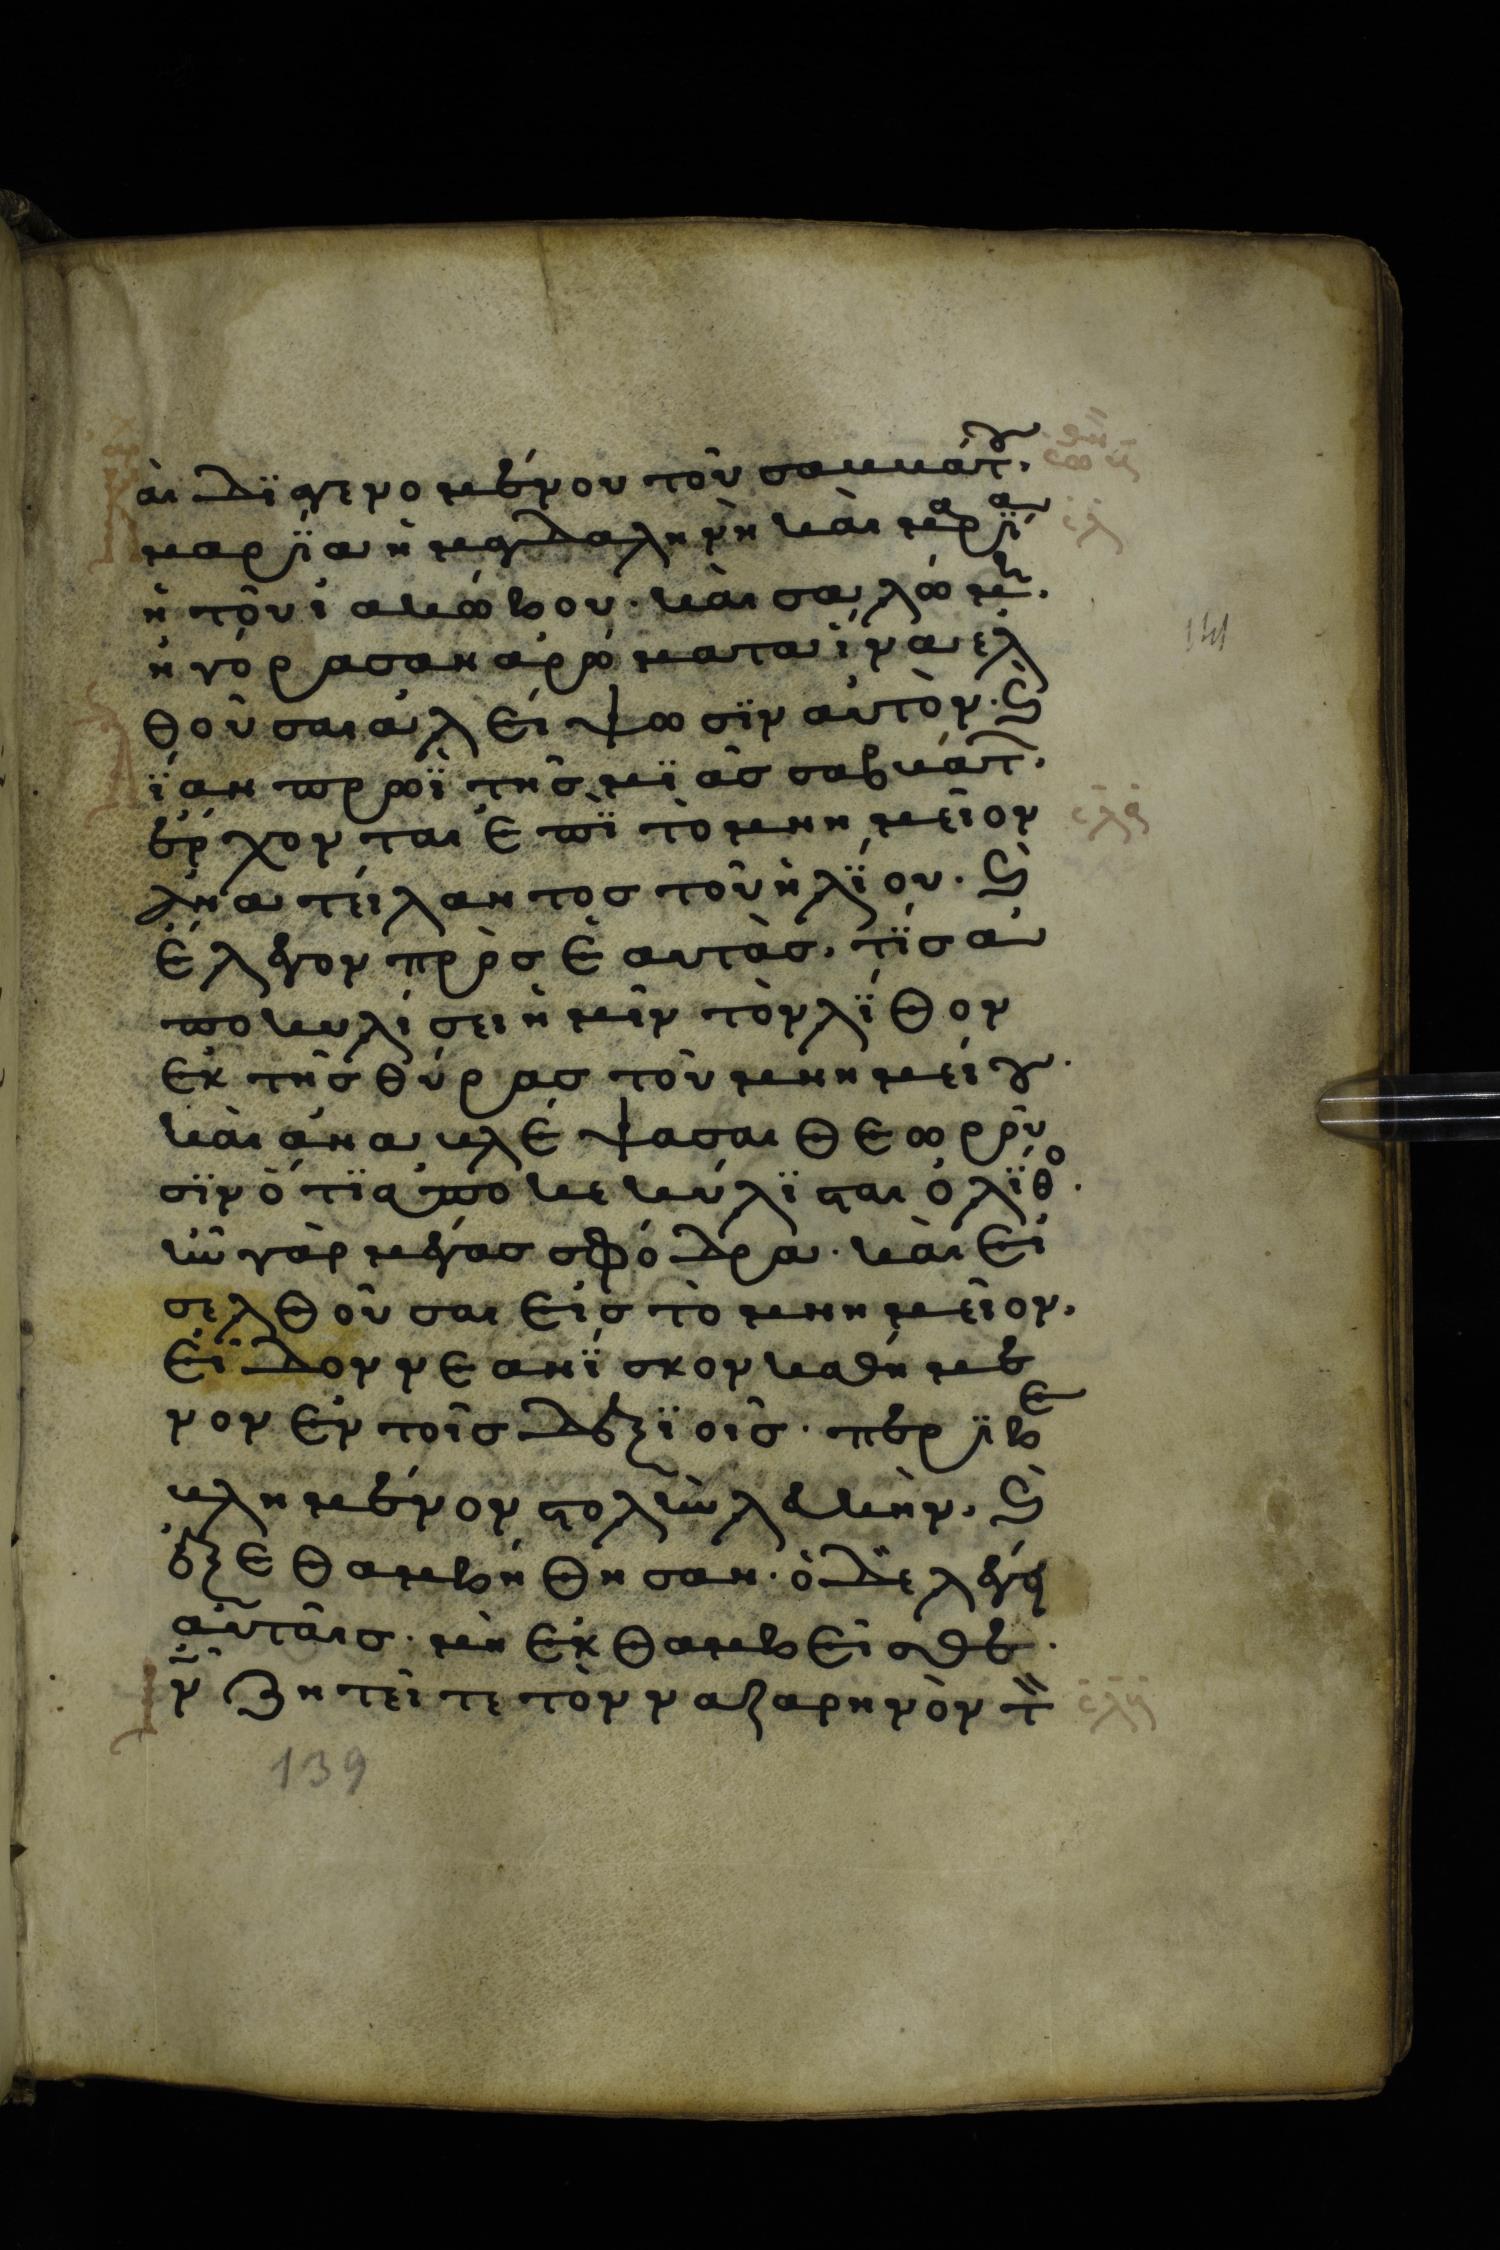 Και διαγενομένου τοῦ σαββάτου.
μαρΐα ἡ μαγδαληνὴ καὶ μαρΐα
ἡ τοῦ ἰακώβου. καὶ σαλώμη.
ἠγόρασαν ἀρώματα ἵνα ἐλ
θοῦσαι ἀλείψωσϊν αὐτόν. ϗ
λΐαν πρωῒ τῆς μϊᾶς σαββάτ.
ἔρχονται ἐπῒ τὸ μνημεῖον
ἀνατείλαντος τοῦ ἡλΐου. ϗ
ἔλεγον πρὸς ἑαυτὰς. τΐς ἀ
ποκυλίσει ἡμῖν τὸν λΐθον
ἐκ τῆς θύρας τοῦ μνημείου.
καὶ ἀναβλέψασαι θεωροῦ
σϊν ὅτϊ ἀποκεκύλϊσται ὁ λΐθο.
ἦν γὰρ μέγας σφόδρα. καὶ εἰ
σελθοῦσαι εἰς τὸ μνημεῖον.
εἶδον νεανΐσκον καθήμε
νον ἐν τοῖς δεξϊοῖς. περϊβε
βλημένον στολὴν λευκὴν. ϗ
ἐξεθαμβήθησαν. ὁ δὲ λέγει
αὐταῖς. μὴ ἐκθαμβεῖσθε.
ῑν ζητεῖτε τὸν ναζαρηνὸν τὸν
139
141